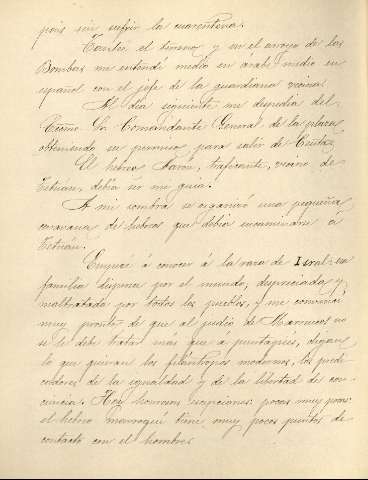 pais sin sufrir la cuarentena.
Tanteé el terreno y en el arroyo de las
Bombas me entendí medio en árabe medio en
español con el jefe de la guardiana vecina.
Al dia siguiente me despedia del
Excmo Sr Comandante General de la plaza
obteniendo su permiso, para salir de Ceuta.
El hebreo Aaron, traficante, vecino de
Tetuán, debia ser mi guia.
A mi sombra se organizó una pequeña
caravana de hebreos que debia encaminarse á
Tetuán.
Empecé á conocer á la raza de Isral: esa
familia dispersa por el mundo, despreciada y
maltratada por todos los pueblos, y me convencí
muy pronto de que al judio de Marruecos no
se le debe tratar más que a puntapiés, digan
lo que quieran los filántropos modernos, los predi-
cadores de la igualdad y de la libertad de con-
ciencia. Hay honrosas escepciones: pocas muy pocas:
el hebreo marroquí tiene muy pocos puntos de
contacto con el hombre.